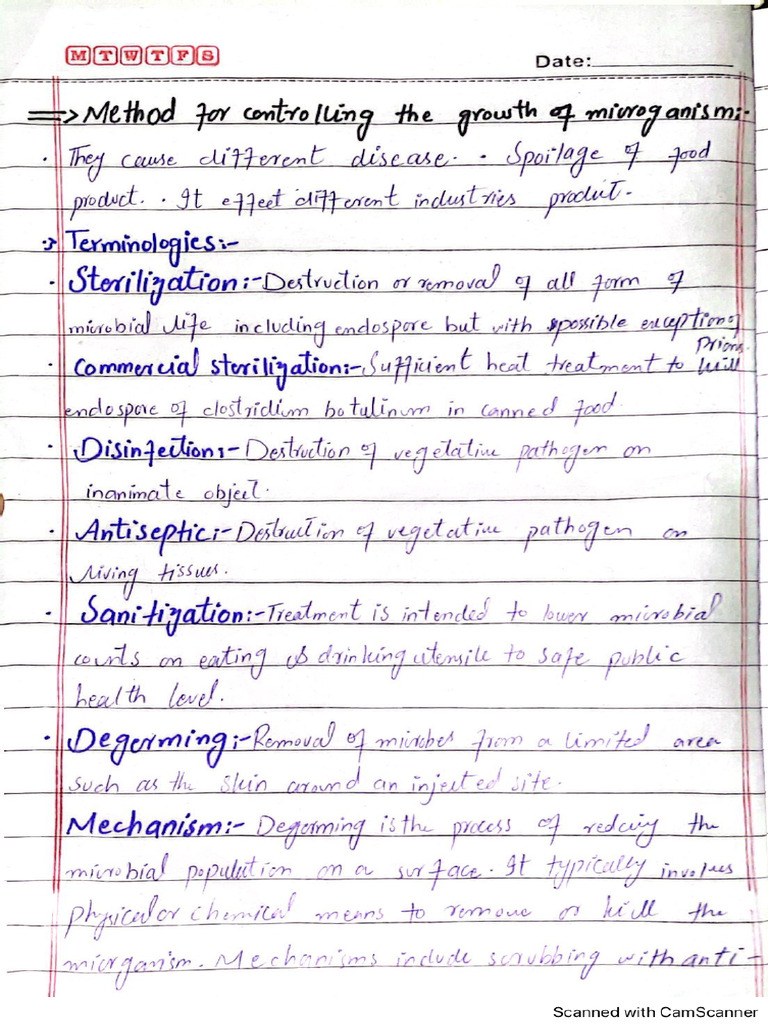 M T W T F S
Date:
=> Method for controlling the growth of microganism:-
· They cause different disease. · Spoilage of food
product. · It effect different industries produt.
Terminologies:-
· Sterilization:- Destruction or removal of all form of
microbial life including endospore but with possible exception of
Prions.
· Commercial sterilization:- Sufficient heat treatment to kill
endospore of clostridium botulinum in canned food.
· Disinfection:- Destruction of vegetative pathogen on
inanimate object.
· Antiseptic:- Destruction of vegetative pathogen on
living tissues.
· Sanitization:- Treatment is intended to lower microbial
counts on eating & drinking utensile to safe public
health level.
· Degerming:- Removal of microbes from a limited area
such as the skin around an injected site.
Mechanism:- Degerming is the process of reducig the
microbial population on a surface. It typically involves
physical or chemical means to remove or kill the
micrganism. Mechanisms include scrubbing with anti-
Scanned with CamScanner